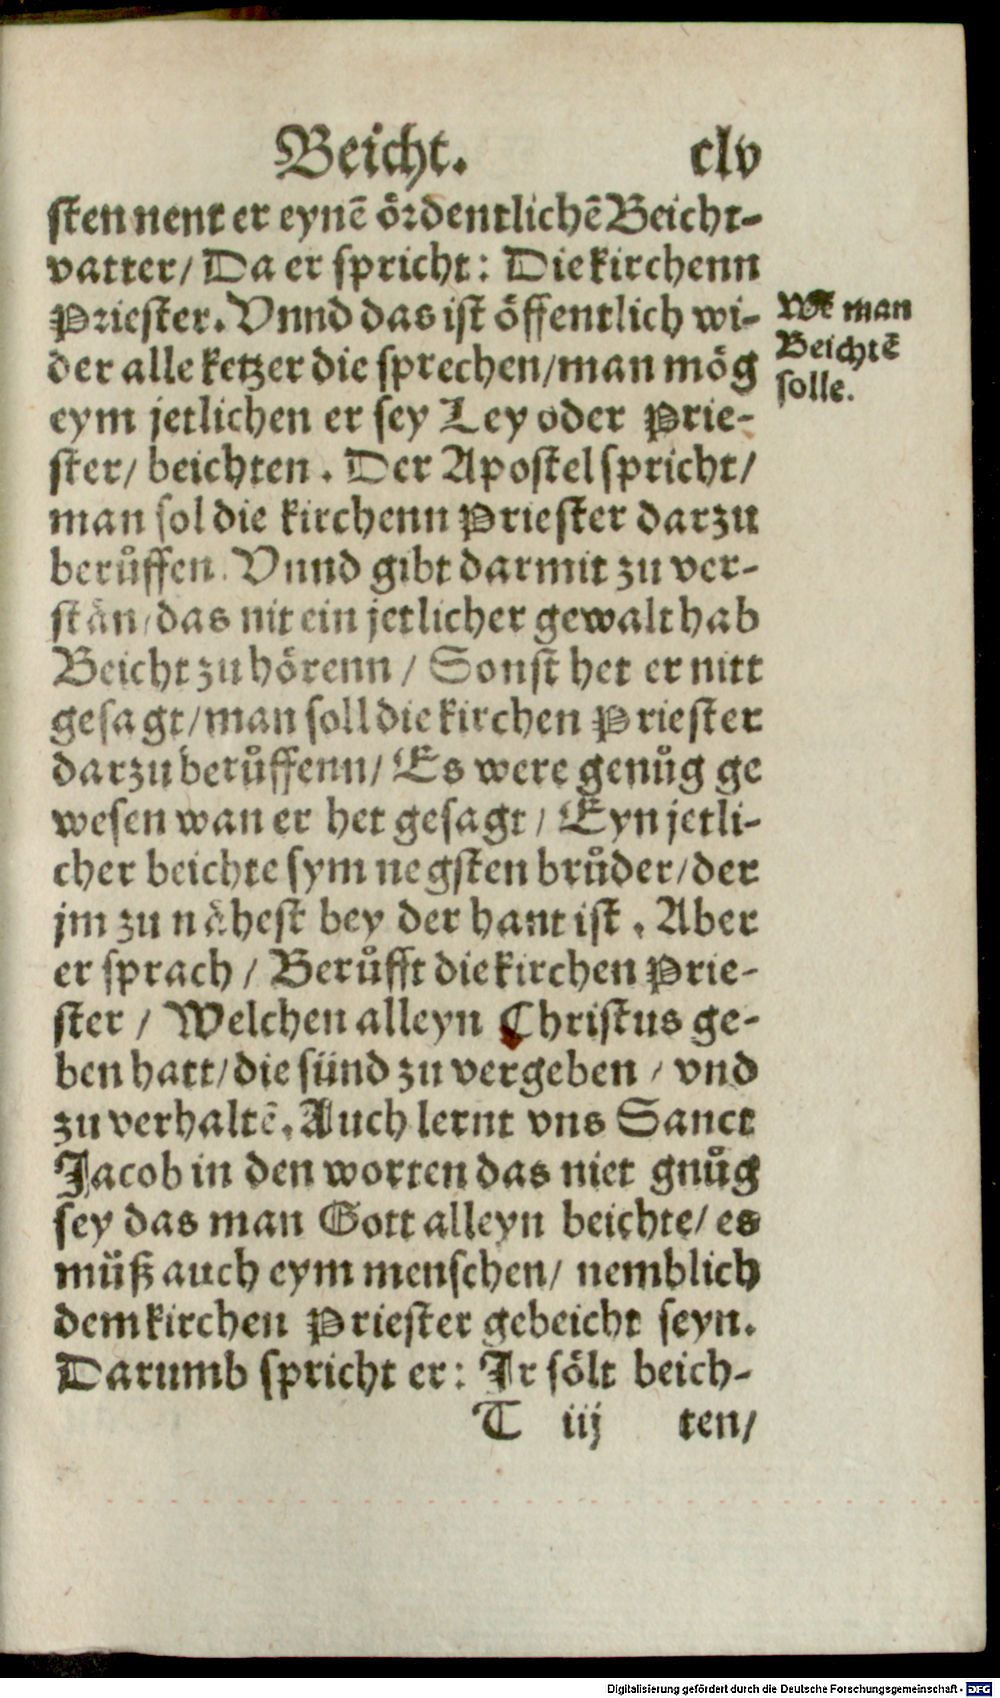 Beicht. clv
sten nent er eynē ördentlichē Beicht-
vatter/ Da er spricht: Die kirchenn
Priester. Vnnd das ist öffentlich wi-
der alle ketzer die sprechen/man mög
eym jetlichen er sey Ley oder Prie-
ster/ beichten. Der Apostel spricht/
man sol die kirchenn Priester darzu
berůffen. Vnnd gibt darmit zu ver-
stän/das nit ein jetlicher gewalt hab
Beicht zu hörenn/ Sonst het er nitt
gesagt/man soll die kirchen Priester
darzu berůffenn/ Es were genůg ge
wesen wan er het gesagt/ Eyn jetli-
cher beichte sym negsten brůder/der
jm zu nähest bey der hant ist. Aber
er sprach/ Berůfft die kirchen Prie-
ster/ Welchen alleyn Christus ge-
ben hatt/die sünd zu vergeben/ vnd
zu verhaltē. Auch lernt vns Sanct
Jacob in den worten das niet gnůg
sey das man Gott alleyn beichte/ es
müß auch eym menschen/ nemblich
dem kirchen Priester gebeicht seyn.
Darumb spricht er: Ir sölt beich-
T iij ten/
man
Beichtē
solle.
Digitalisierung gefördert durch die Deutsche Forschungsgemeinschaft - DFG